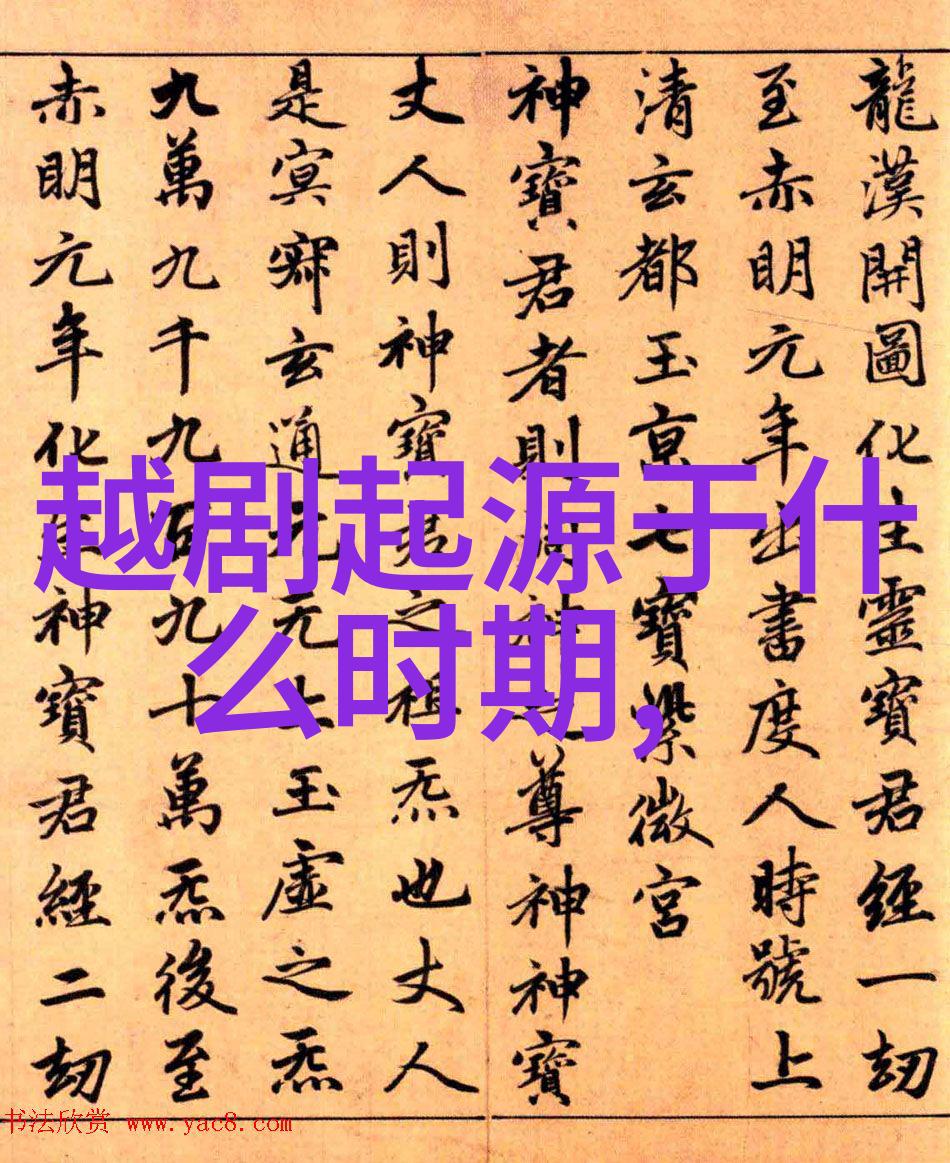 龍漢開圖化生靈寶君經一劫
至赤明元年出書度人時號上
清玄都玉京七寶紫微宮
神寶君者則神之尊神神寶
丈人則神寶君之祖炁也丈人
是冥寂玄通元无上玉虛之炁
九萬九千九百九十萬炁後至
赤明元年化生神寶君經二劫
越剧起源于什
么时期,
书法欣赏 www.yac8.com